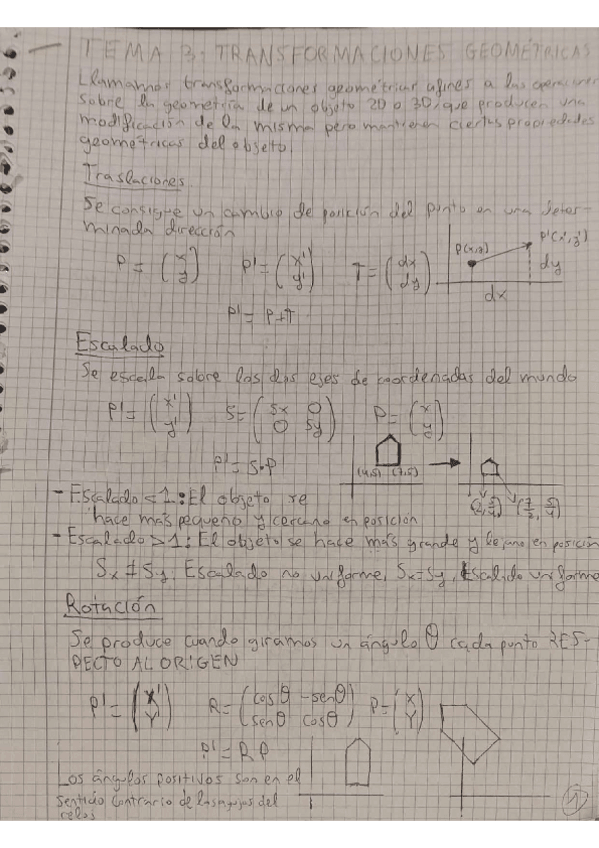 TEMA 3: TRANSFORMACIONES GEOMÉTRICAS
Llamamos transformaciones geométricas afines a las operaciones
sobre la geometría de un objeto 2D o 3D, que producen una
modificación de la misma pero mantienen ciertas propiedades
geométricas del objeto.
Traslaciones
Se consigue un cambio de posición del punto en una deter-
minada dirección
P = (x y) P' = (x' y') T = (dx dy) P(x,y) P'(x',y') dy
dx
P' = P+T
Escalado
Se escala sobre los dos ejes de coordenadas del mundo
P' = (x' y') S = (Sx 0 0 Sy) P = (x y)
P' = S·P (4,5) (7,5)
- Escalado < 1: El objeto se (2, 5/4) (7/2, 5/4)
hace más pequeño y cercano en posición
- Escalado > 1: El objeto se hace más grande y lejano en posición
Sx ≠ Sy, Escalado no uniforme, Sx=Sy, Escalado uniforme
Rotación
Se produce cuando giramos un ángulo θ cada punto RES-
PECTO AL ORIGEN
P' = (X' Y') R = (cosθ -senθ senθ cosθ) P = (X Y)
P' = R P
Los ángulos positivos son en el
sentido contrario de las agujas del
reloj
1